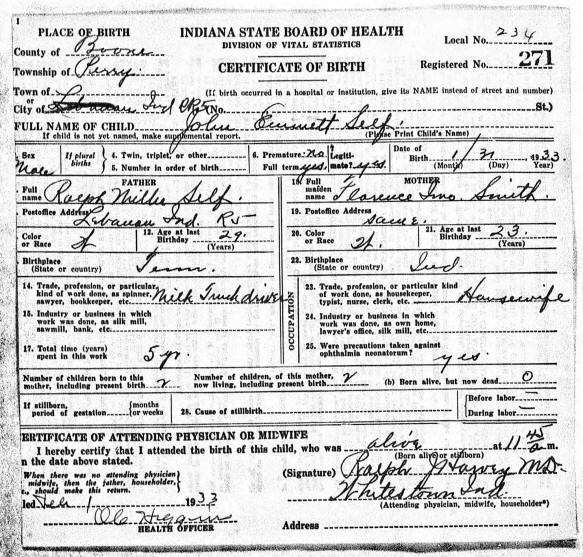 1
PLACE OF BIRTH
INDIANA STATE BOARD OF HEALTH
DIVISION OF VITAL STATISTICS
CERTIFICATE OF BIRTH
Local No. 234
Registered No. 271
County of Boone
Township of Perry
Town of
or
City of Lebanon Ind R5 (No. St.)
(If birth occurred in a hospital or institution, give its NAME instead of street and number)
FULL NAME OF CHILD John Emmett Self.
If child is not yet named, make supplemental report. (Please Print Child's Name)
Sex Male
If plural births
4. Twin, triplet, or other
5. Number in order of birth
6. Premature no
Full term yes
Legitimate? yes
Date of Birth 1 / 31 1933.
(Month) (Day) Year)
FATHER
Full name Ralph Miller Self.
Postoffice Address Lebanon Ind. R5
Color or Race W
12. Age at last Birthday 29.
(Years)
Birthplace (State or country) Tenn.
14. Trade, profession, or particular kind of work done, as spinner, sawyer, bookkeeper, etc. Milk Truck driver
15. Industry or business in which work was done, as silk mill, sawmill, bank, etc.
17. Total time (years) spent in this work 5 yr.
MOTHER
18. Full maiden name Florence Imo. Smith.
19. Postoffice Address same.
20. Color or Race W.
21. Age at last Birthday 23.
(Years)
22. Birthplace (State or country) Ind.
OCCUPATION
23. Trade, profession, or particular kind of work done, as housekeeper, typist, nurse, clerk, etc. Housewife
24. Industry or business in which work was done, as own home, lawyer's office, silk mill, etc.
25. Were precautions taken against ophthalmia neonatorum? yes.
Number of children born to this mother, including present birth 2
Number of children, of this mother, now living, including present birth 2
(b) Born alive, but now dead 0
If stillborn, period of gestation {months or weeks
28. Cause of stillbirth
{Before labor —
{During labor —
ERTIFICATE OF ATTENDING PHYSICIAN OR MIDWIFE
I hereby certify that I attended the birth of this child, who was alive at 11 45 a.m.
(Born alive or stillborn)
n the date above stated.
When there was no attending physician
midwife, then the father, householder,
c., should make this return.
(Signature) Ralph J Harvey M.D.
Whitestown Ind
(Attending physician, midwife, householder*)
led Feb 1 1933
HEALTH OFFICER
Address